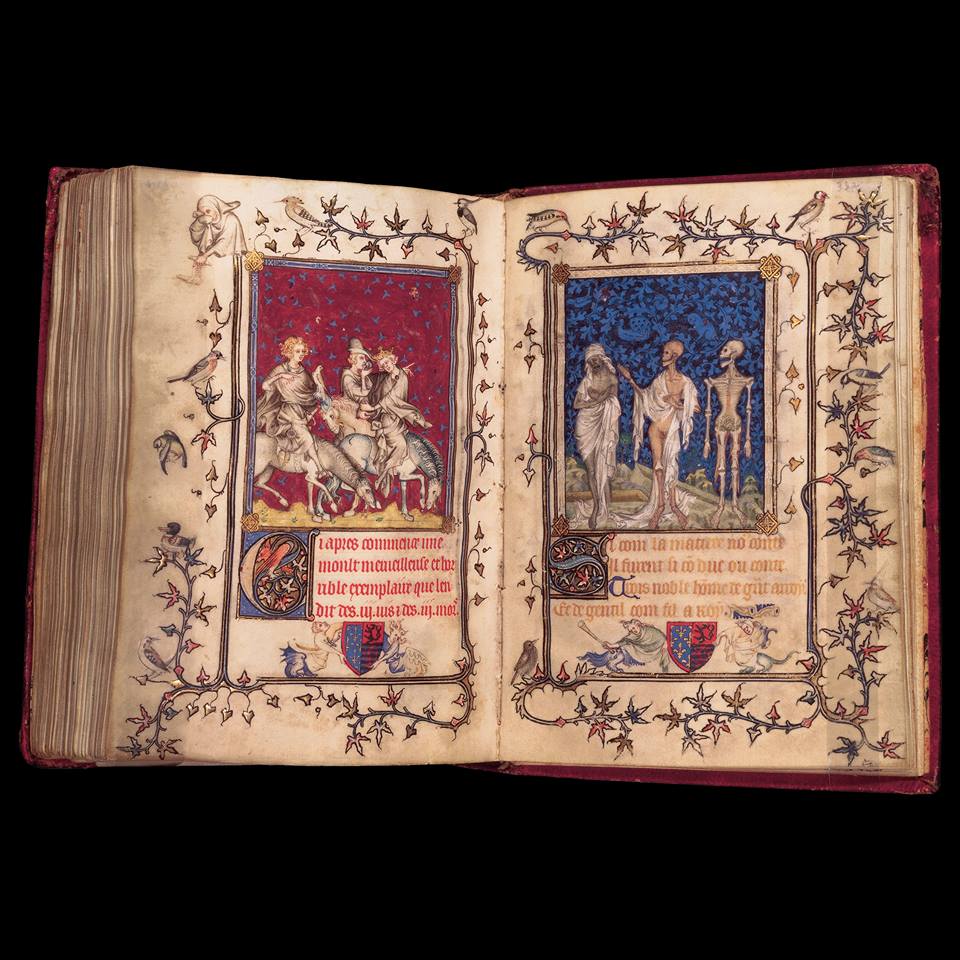 Ci apres commence une
moult merueilleuse et hor
rible exemplaire que len
dit des .iij. uis ⁊ des .iij. mors
Si com la matere nō conte
Il furent si cō duc ou conte
Trois noble hōme de grāt arroy
Et de gentil com fil a roy